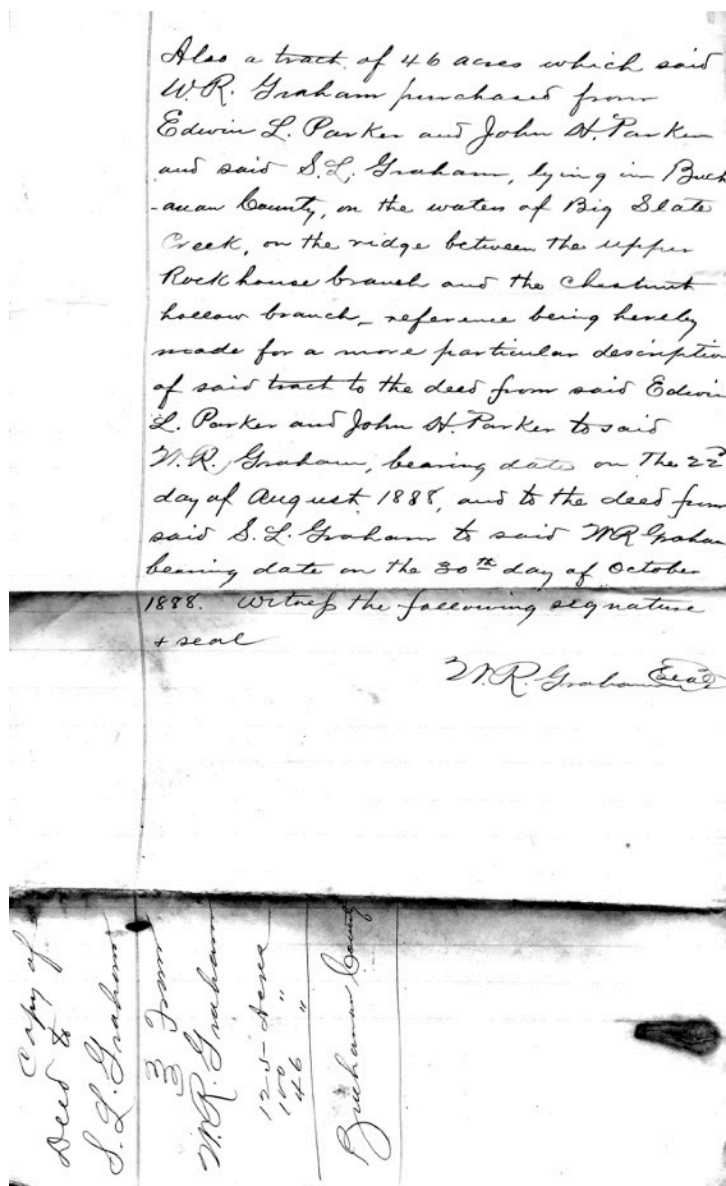 Also a tract of 46 acres which said
W. R. Graham purchased from
Edwin L. Parker and John H. Parker
and said S. L. Graham, lying in Buch
-anan County, on the waters of Big Slate
Creek, on the ridge between the upper
Rockhouse branch and the Chestnut
hollow branch, reference being hereby
made for a more particular description
of said tract to the deed from said Edwin
L. Parker and John H. Parker to said
W. R. Graham, bearing date on the 22d
day of August 1888, and to the deed from
said S. L. Graham to said W R Graham
bearing date on the 30th day of October
1888. Witness the following signature
+ seal
W. R. Graham Seal
Copy of
Deed to
S. L. Graham
From
W. R. Graham
125 - Acres
100 "
46 "
Buchanan County